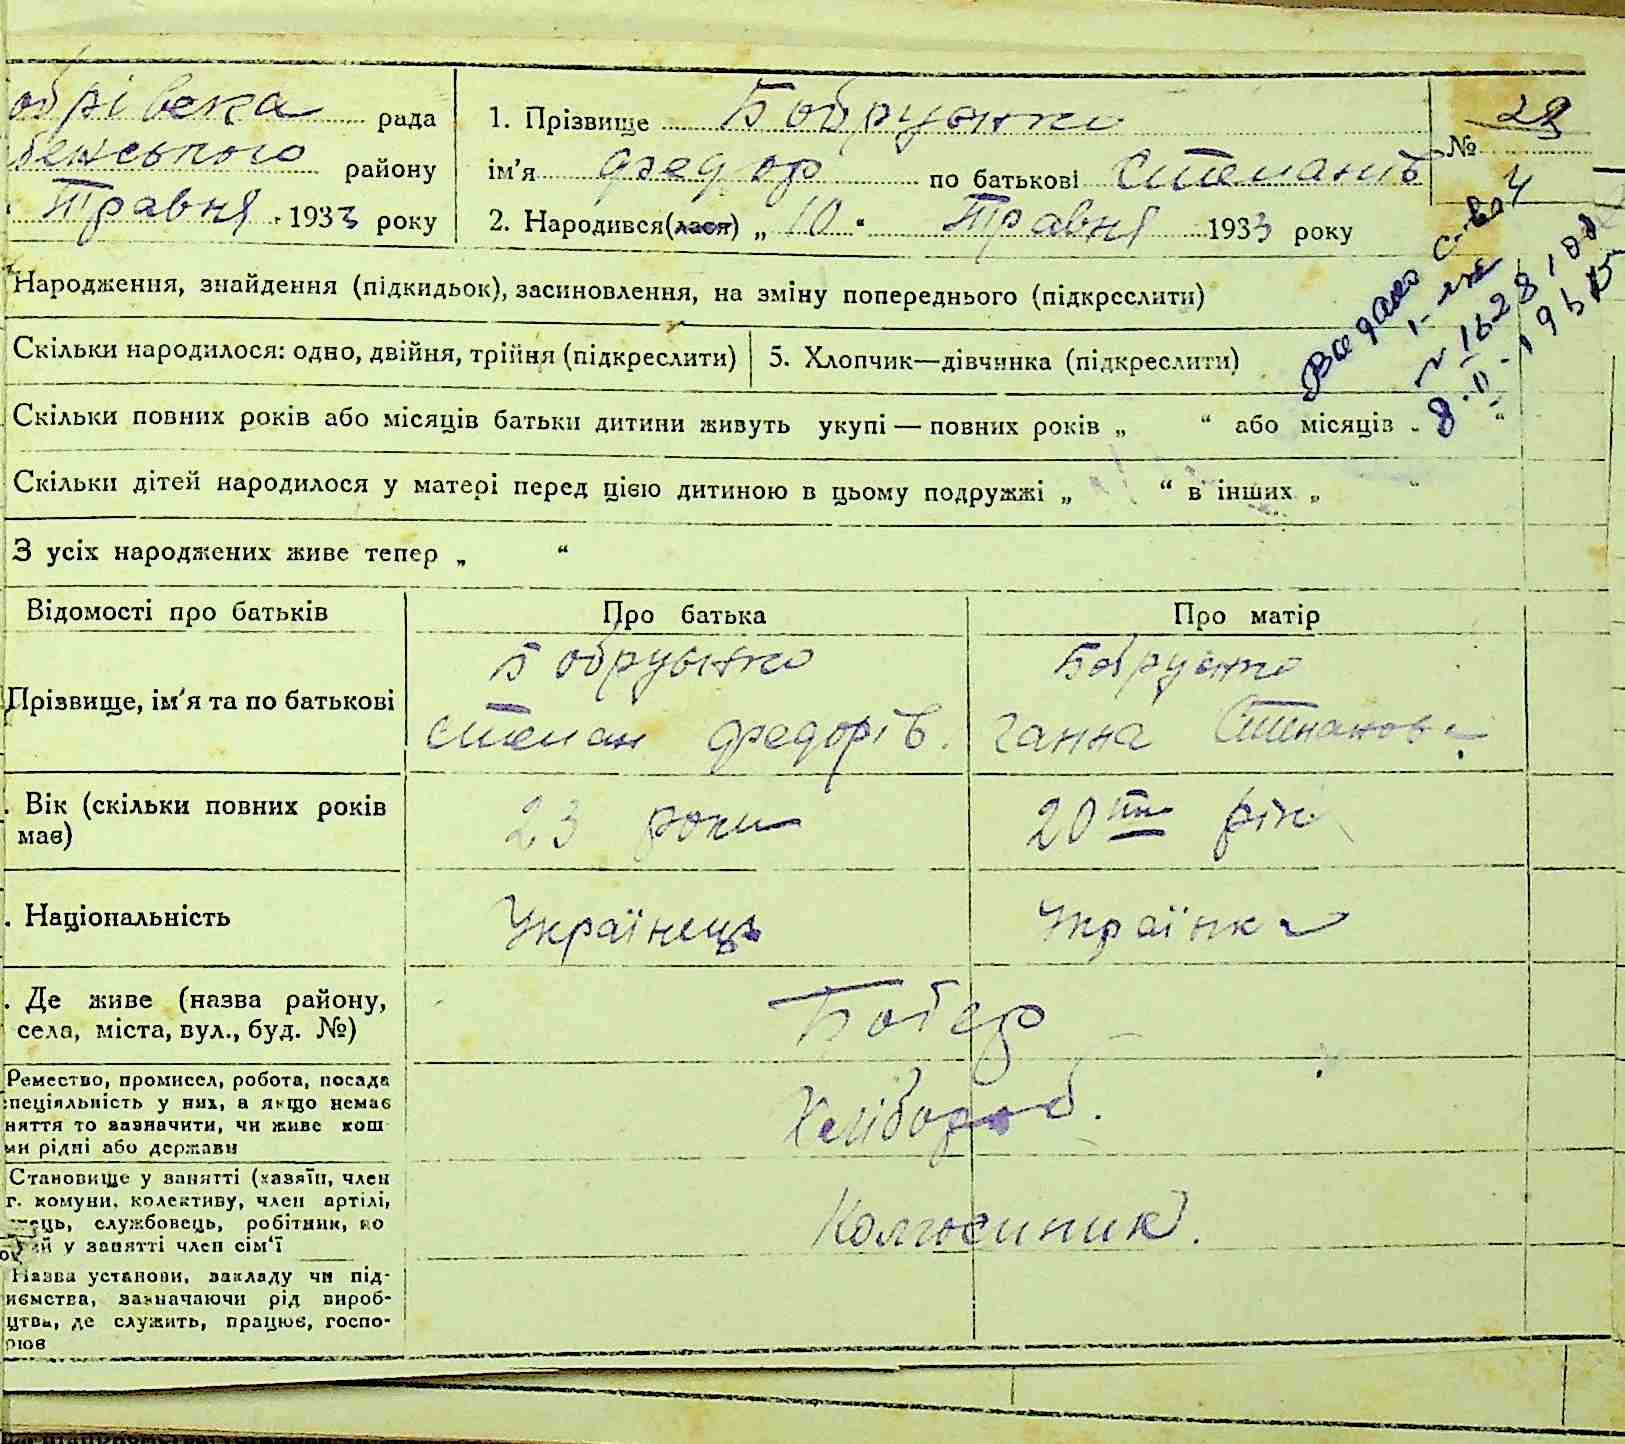 обрівска рада
бенського району
Травня 1933 року
1. Прізвище Бобрушко
ім'я Федор по батькові Степанів
2. Народився(лася) „ 10 " Травня 1933 року
№ 29
4
Видано с-во
8.II-195
Народження, знайдення (підкидьок), засиновлення, на зміну попереднього (підкреслити)
Скільки народилося: одно, двійня, трійня (підкреслити) 5. Хлопчик—дівчинка (підкреслити)
Скільки повних років або місяців батьки дитини живуть укупі — повних років „ “ або місяців „ “
Скільки дітей народилося у матері перед цією дитиною в цьому подружжі „ “ в інших „ “
З усіх народжених живе тепер „ “
Відомості про батьків Про батька Про матір
Прізвище, ім'я та по батькові
Бобрушко Бобрушко
Степан Федорів. Ганна Степанов
. Вік (скільки повних років має)
23 роки 20ть рік
. Національність Українець Українка
. Де живе (назва району,
села, міста, вул., буд. №)
Ремество, промисел, робота, посада
пеціяльність у них, а якщо немає
няття то зазначити, чи живе кош
ми рідні або держави
Хлібороб.
Становище у занятті (хазяїн, член
г. комуни, колективу, член артілі,
ець, службовець, робітник, по
ий у занятті член сім'ї
Колгоспник.
Назва установи, закладу чи під-
иємства, зазначаючи рід вироб-
цтва, де служить, працює, госпо-
рює